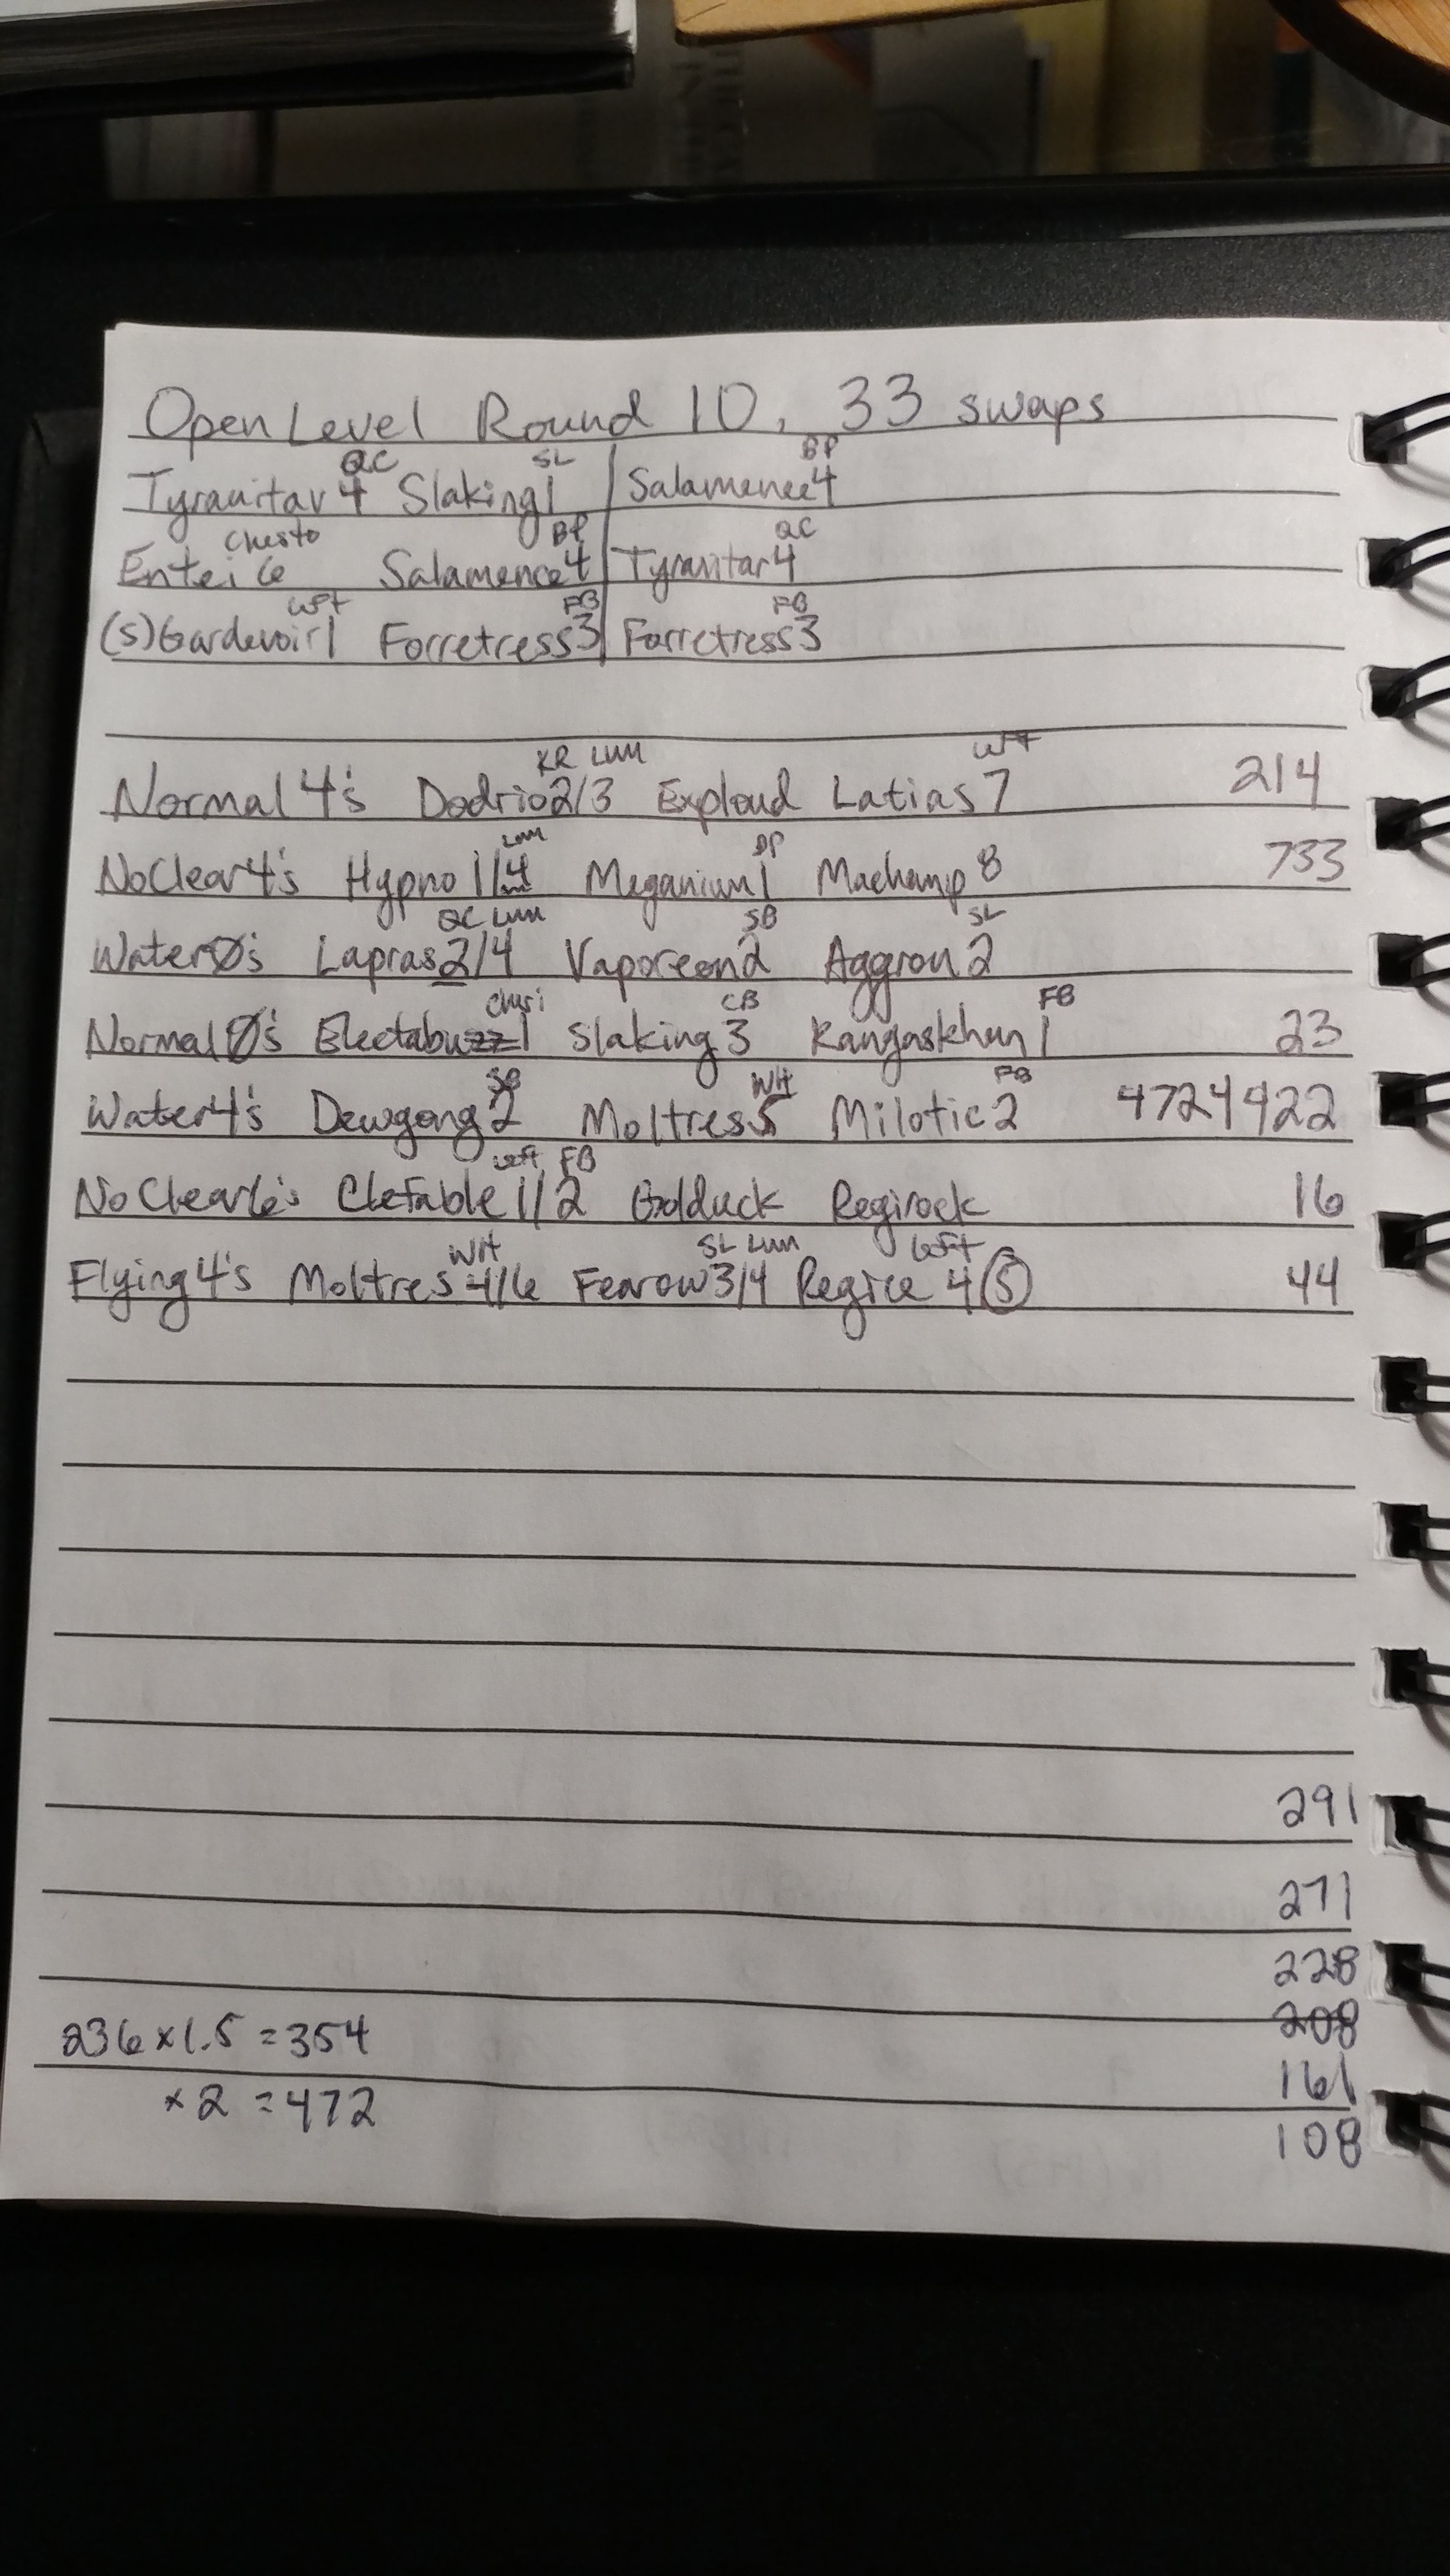 Open Level Round 10, 33 swaps
QC SL BP
Tyranitar 4 Slaking 1 Salamence 4
Chesto BP QC
Entei 6 Salamence 4 Tyranitar 4
Left FB FB
(S) Gardevoir 1 Forretress 3 Forretress 3
KR LUM Left
Normal 4's Dodrio 2/3 Exploud Latias 7 214
Lum BP
No Clear 4's Hypno 1/4 Meganium 1 Machamp 8 733
QC Lum SB SL
Water Ø's Lapras 2/4 Vaporeon 2 Aggron 2
Cheri CB FB
Normal Ø's Electabuzz 1 Slaking 3 Kangaskhan 1 23
SB WH FB
Water 4's Dewgong 2 Moltres 5 Milotic 2 4724922
Left FB
No Clear 6's Clefable 1/2 Golduck Regirock 16
WH SL Lum Left
Flying 4's Moltres 4/6 Fearow 3/4 Regice 4 (5) 44
291
271
228
208
236 x 1.5 = 354
161
x 2 = 472
108